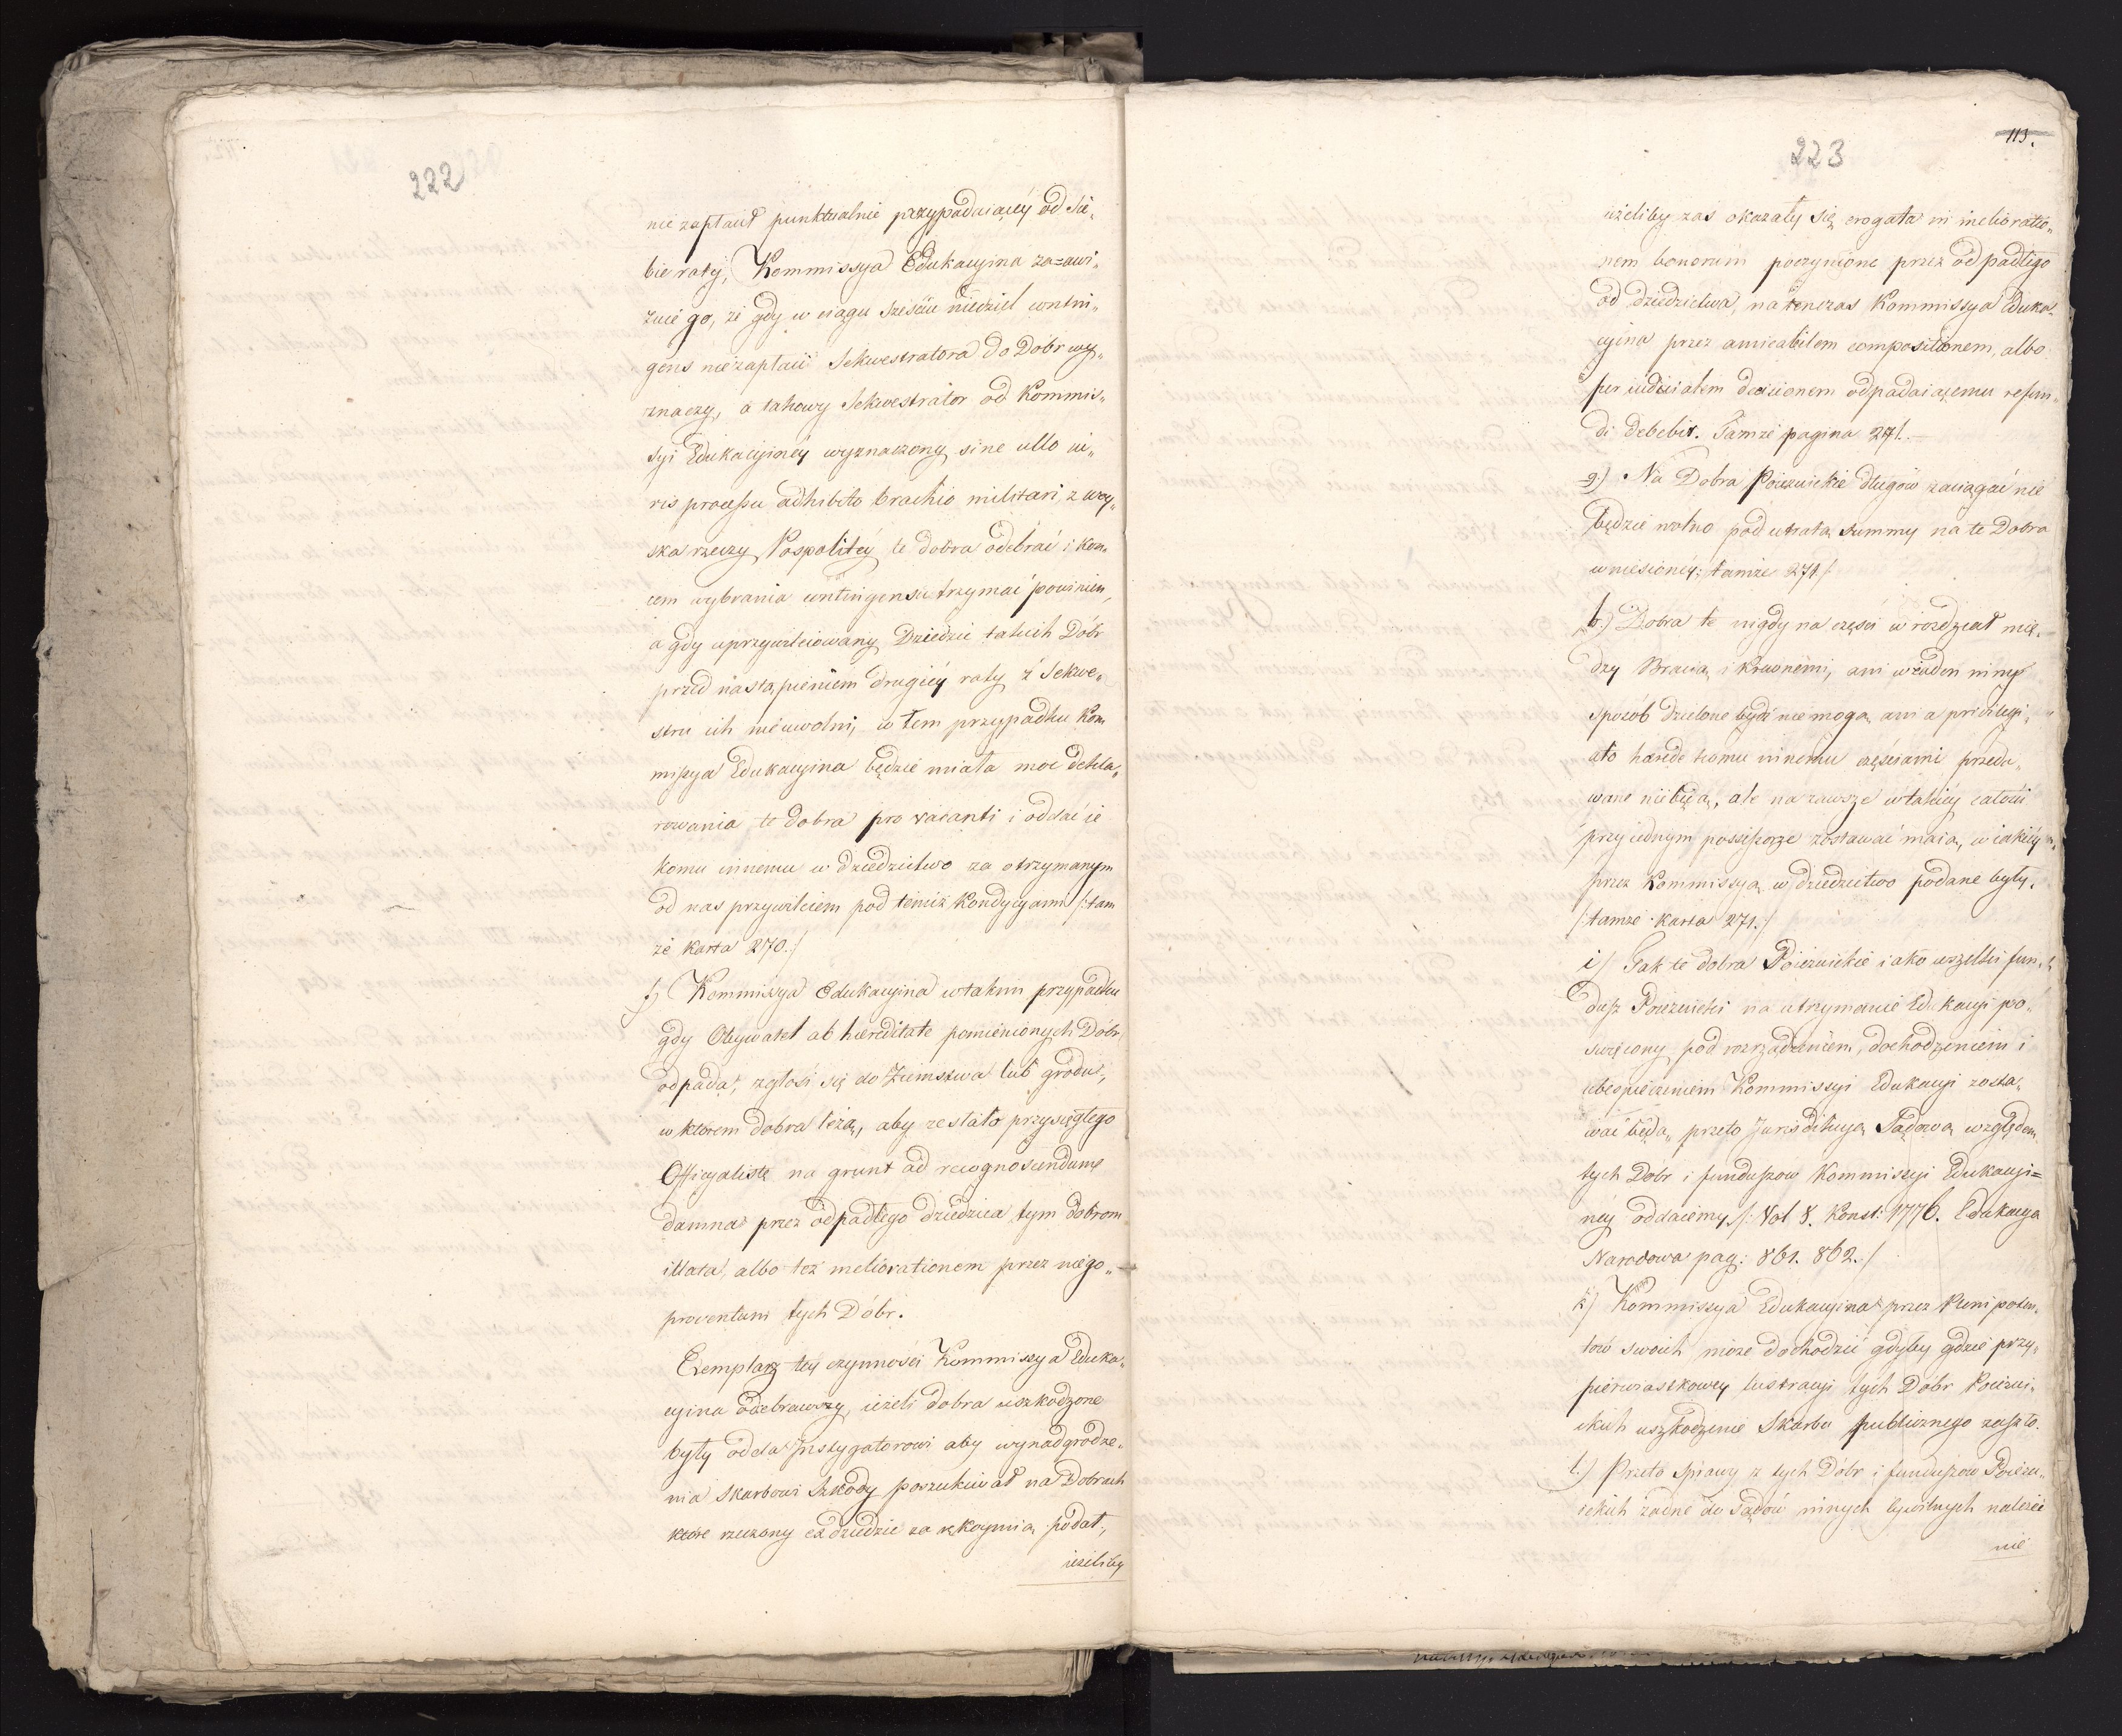 222
nie zapłacił punktualnie przypadaiącéy od sie„
bie raty, Kommissya Edukacyina za=awi„
zuie go, że gdy w ciągu sześciu niedziel contin„
gens nie zapłaci Sekwestratora do Dóbr wy„
znaczy, a takowy Sekwestrator od Kommis„
syi Edukacyinéy wyznaczony sine ullo iu„
ris processu adhibito brachio militari z woy„
ska rzeczy Pospolitéy te dobra odebrać i kon„
cem wybrania contingensu trzymać powinien,
a gdy uprzywileiowany Dziedzic takich Dóbr
przed nastąpieniem drugiéy raty z Sekwe„
stru ich nieuwolni, w tem przypadku Kom
missya Edukacyina będzie miała moc dekla„
rowania te dobra pro vacanti i oddać ie
komu innemu w dziedzictwo za otrzymanym
od nas przywileiem pod temiż kondycyami /:tam
że karta 270.:/
f) Kommissya Edukacyina w takim przypadku
gdy Obywatel ab haereditate pomienionych Dóbr
odpada, zgłosi się do Ziemstwa lub grodu,
w którem dobra leżą, aby zesłało przysięgłego
Officyalistę na grunt ad recognoscendum
damna przez odpadłego dziedzica tym dobrom
illata, albo też meliorationem przez niego„
proventum tych Dóbr.
Exemplarz téy czynności Kommissya Eduka„
cyina odebrawszy, ieżeli dobra uszkodzone
były odda Instygatorowi aby wynadgrodze„
nia Skarbowi Szkody poszukiwał na Dobrach
które rzeczony exdziedzic za rękoymią podał,
ieżeliby
113.
223
ieżeliby zaś okazały się erogata in melioratio„
nem bonorum poczynione przez odpadłego
od dziedzictwa, natenczas Kommissya Eduka„
cyina przez amicabilem compositionem, albo
per iudicialem decisionem odpadaiącemu refun„
di debebit. Tamże pagina 271.
g) Na Dobra Poiezuickie długów zaciągać nie
będzie wolno pod utratą summy na te Dobra
wniesionéy; tamże 271/
h.) Dobra te nigdy na części w rozdział mię„
dzy Bracią i krewnemi, ani w żaden inny
sposób dzielone bydź nie mogą, ani a privilegi„
ato haerede komu innemu częściami przeda„
wane niebędą, ale na zawsze w takiéy całości
przy iednym possessorze zostawać maią, w iakiéy
przez Kommissyą w dziedzictwo podane były.
/:tamże karta 271.:/
i) Jak te dobra Poiezuickie iako wszelki fun„
dusz Poiezuicki na utrzymanie Edukacyi po„
święcony pod rozrządzeniem, dochodzeniem i
ubespieczeniem Kommissyi Edukacyi zosta„
wać będą, przeto Jurisdikcyą Sądową względem
tych Dóbr i funduszow Kommissyi Edukacyi=
néy oddaiemy /: Vol 8. Konst: 1776. Edukacya
Narodowa pag: 861. 862.:/
k) Kommissya Edukacyina przez Plenipoten„
tow swoich może dochodzić gdyby gdzie przy„
pierwiastkowéy lustracyi tych Dóbr Poiezui„
ckich uszkodzenie Skarbu publicznego zaszło.
l.) Przeto Sprawy z tych Dóbr i funduszow Poiezu„
ickich żadne do Sądów innych cywilnych należéć
nie